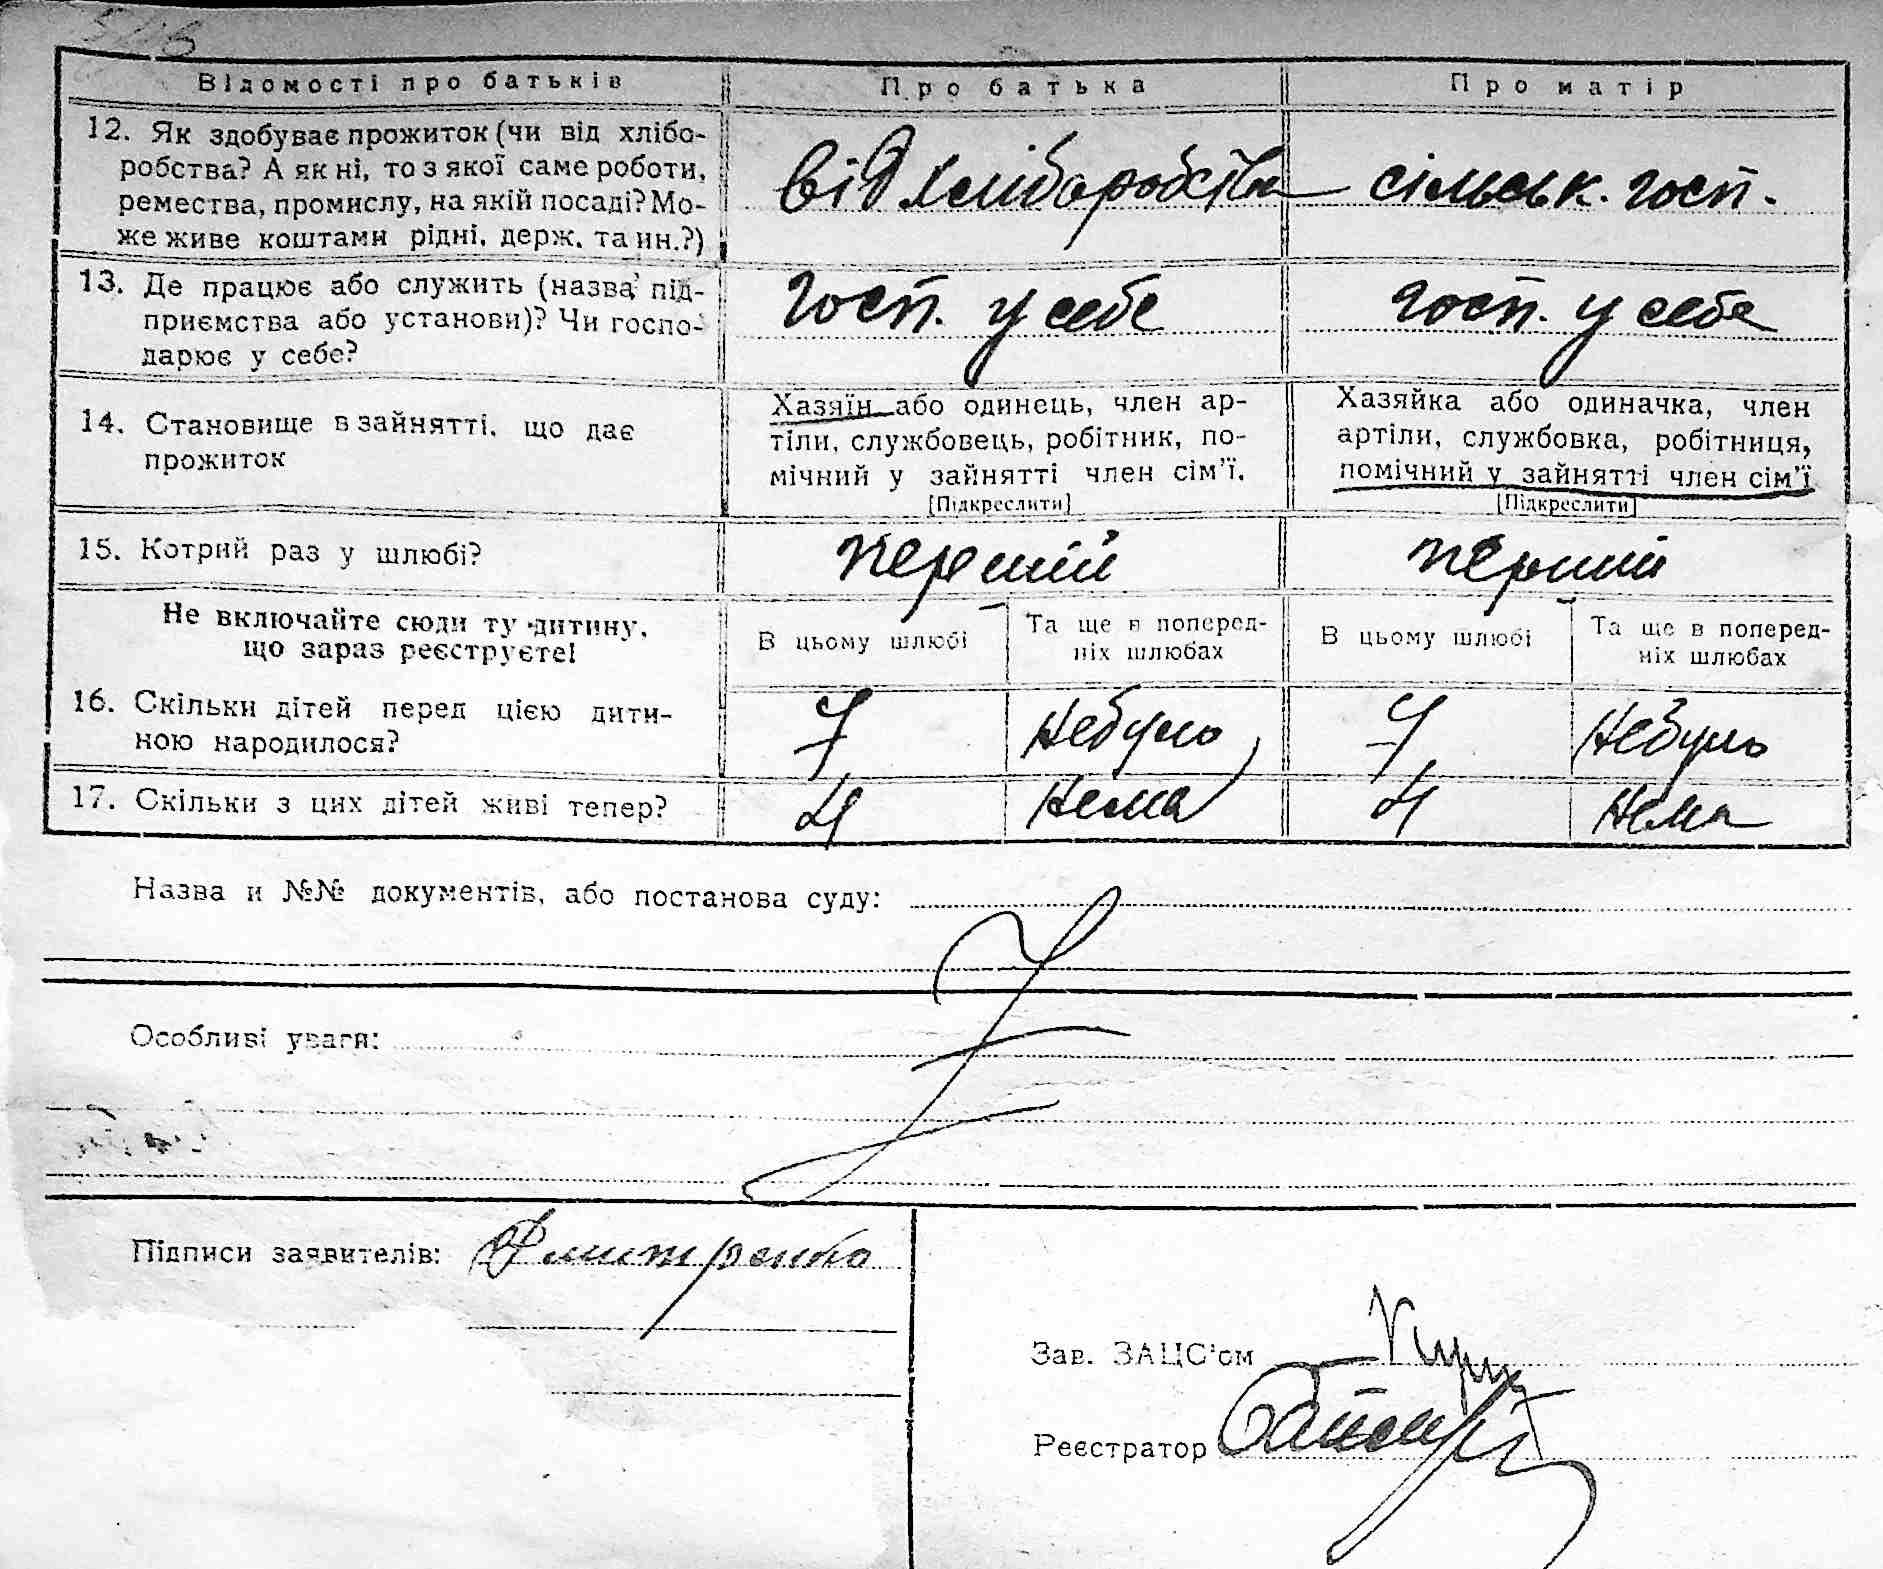 Відомості про батьків Про батька Про матір
12. Як здобуває прожиток (чи від хлібо-
робства? А як ні, то з якої саме роботи,
ремества, промислу, на якій посаді? Мо-
же живе коштами рідні, держ. та ин.?)
від хліборобства сільськ. госп.
13. Де працює або служить (назва під-
приємства або установи)? Чи госпо-
дарює у себе?
госп. у себе госп. у себе
14. Становище в зайнятті, що дає
прожиток
Хазяїн або одинець, член ар-
тіли, службовець, робітник, по-
мічний у зайнятті член сім'ї.
[Підкреслити]
Хазяйка або одиначка, член
артіли, службовка, робітниця,
помічний у зайнятті член сім'ї
[Підкреслити]
15. Котрий раз у шлюбі? перший перший
Не включайте сюди ту дитину,
що зараз реєструєте!
В цьому шлюбі Та ще в поперед-
ніх шлюбах
В цьому шлюбі Та ще в поперед-
ніх шлюбах
16. Скільки дітей перед цією дити-
ною народилося?
7 небуло 7 небуло
17. Скільки з цих дітей живі тепер? 4 нема 4 нема
Назва и №№ документів, або постанова суду:
Особливі уваги:
Підписи заявителів: Дмитренко
Зав. ЗАЦС'ом
Реєстратор